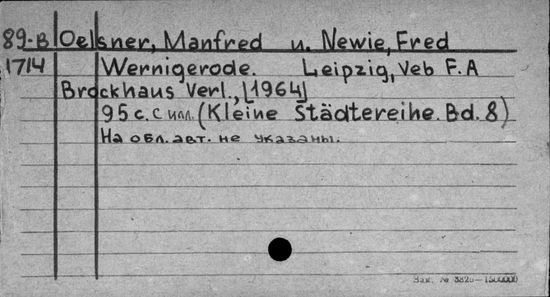 89-В Oelsner, Manfred u. Newie, Fred
1714 Wernigerode. Leipzig, Veb F.A
Brockhaus Verl., [1964]
95 с. с илл. (Kleine Städtereihe. Bd. 8)
На обл. авт. не указаны.
Зак. № 3820—1500000